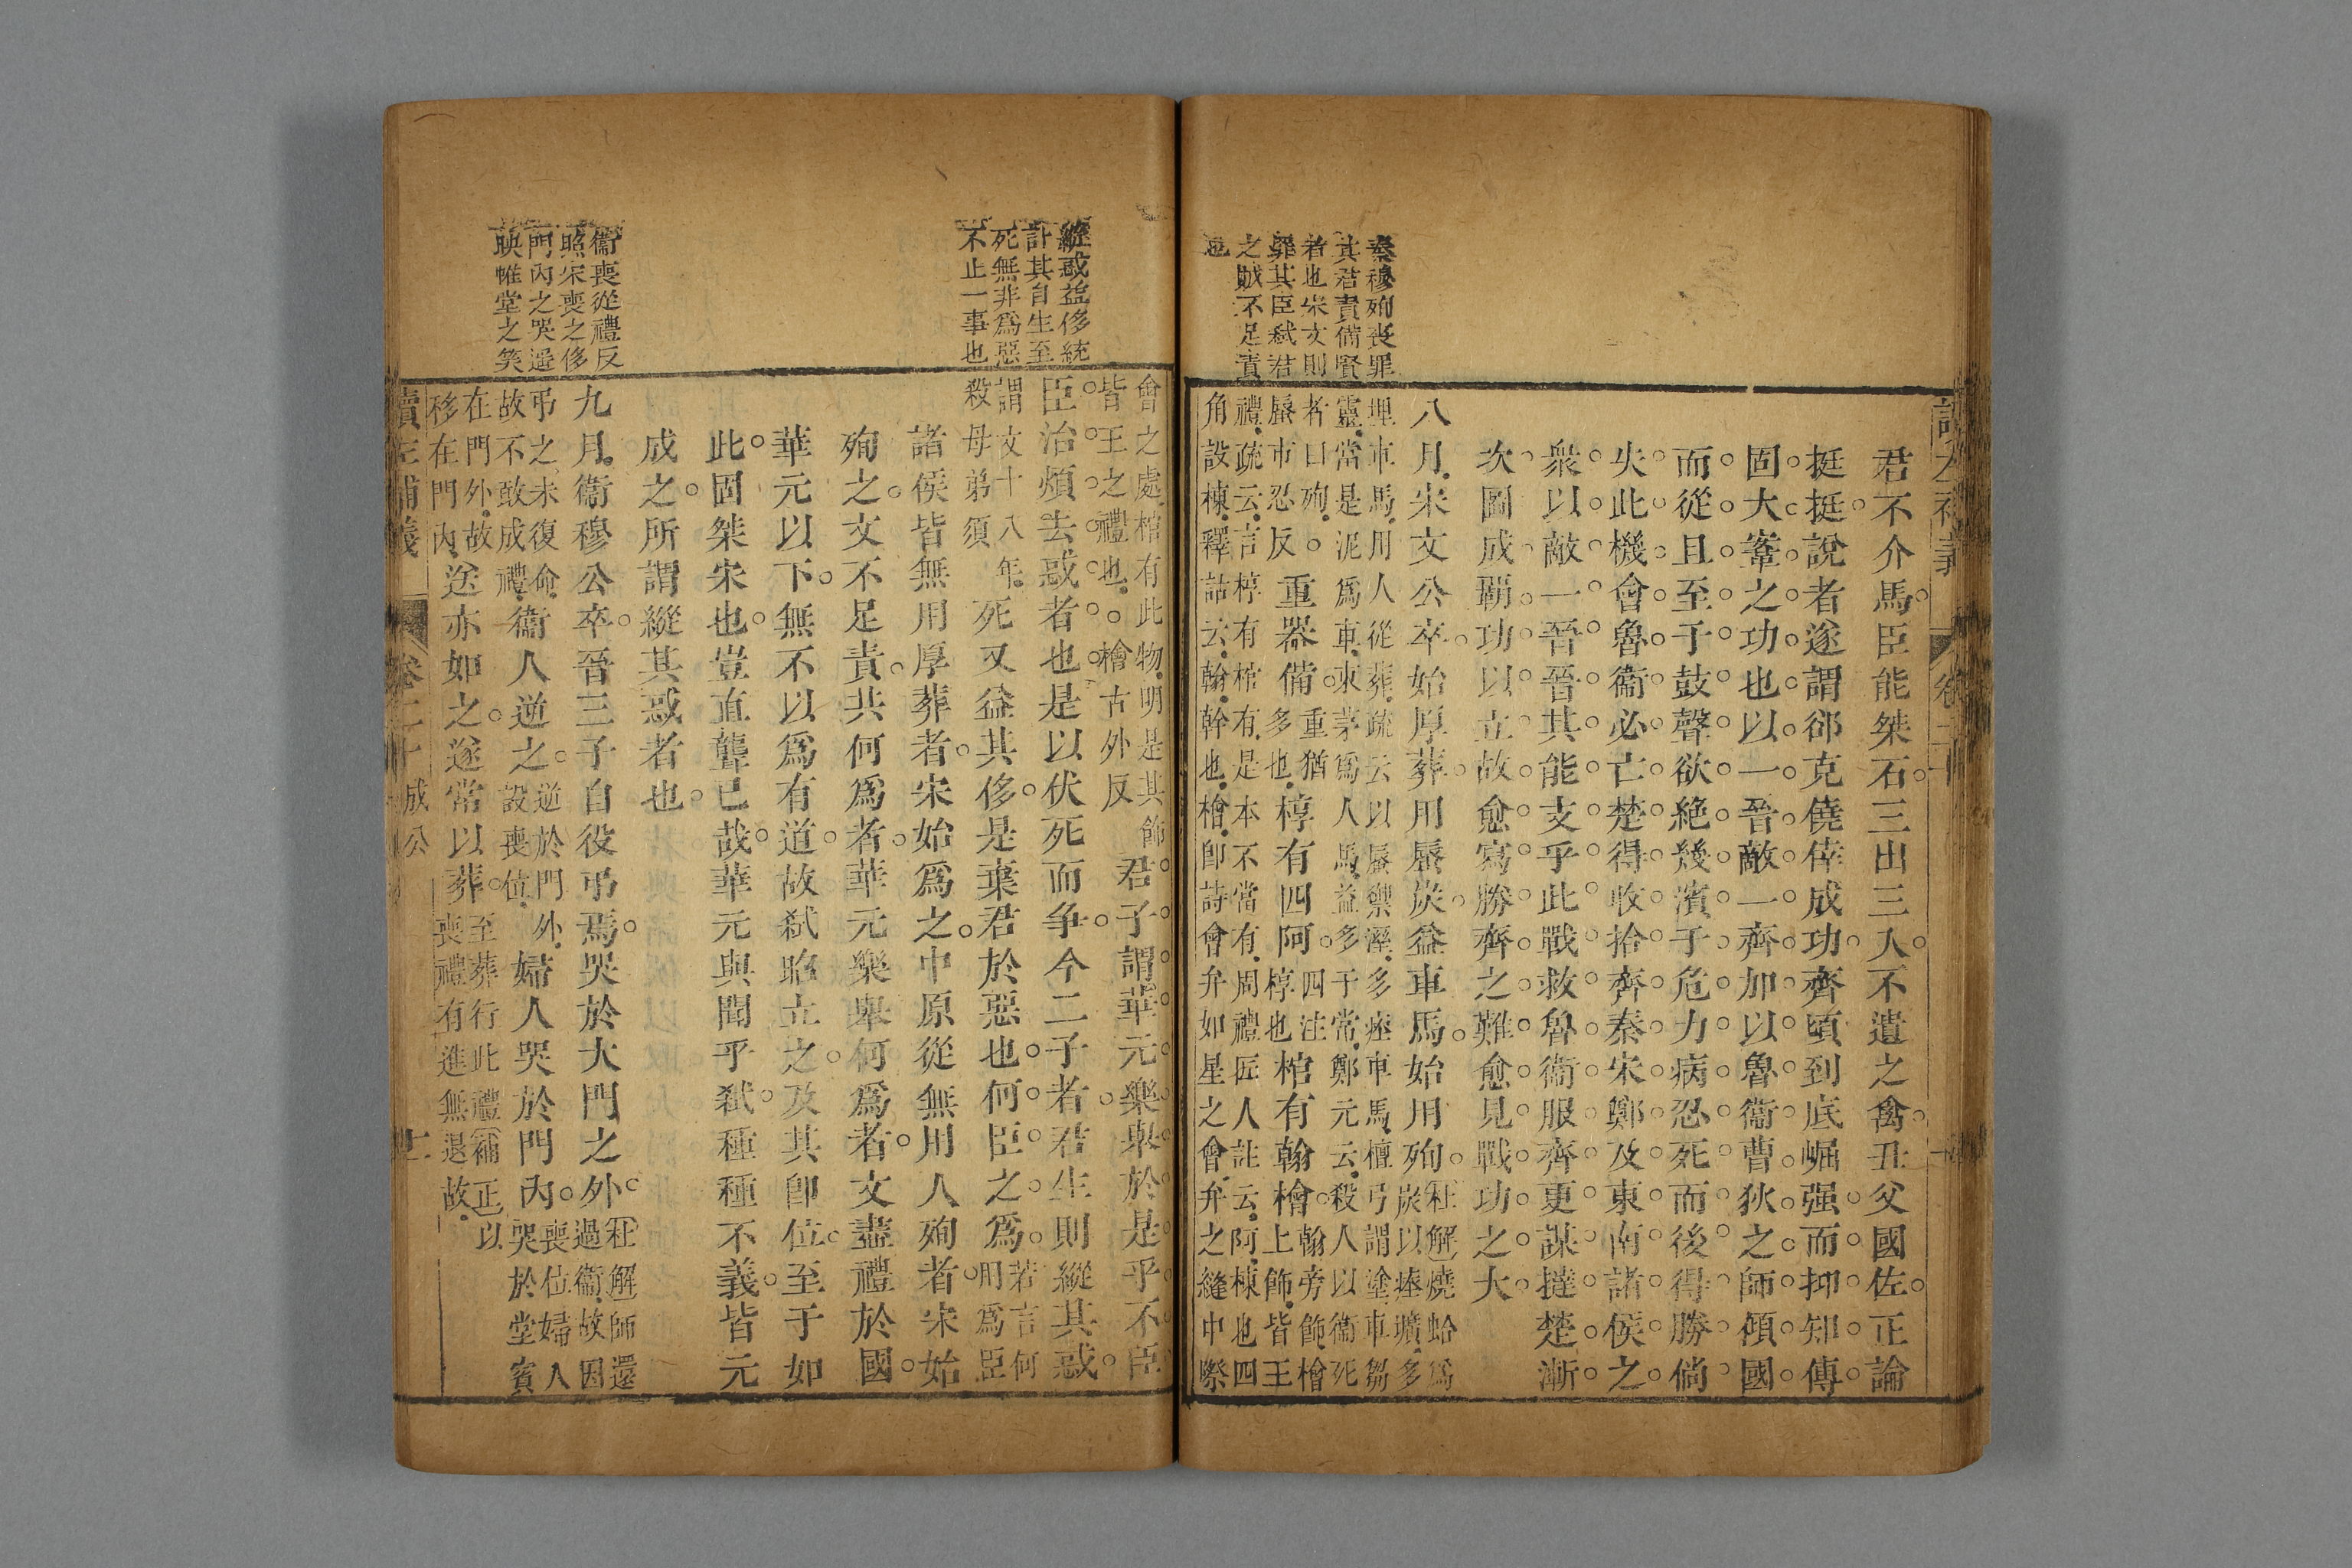 秦穆殉喪罪
其君責備賢
者也宋文則
罪其臣弑君
之賊不足責
也
君不介馬臣能桀石三出三入不遺之禽丑父國佐正論
挺挺說者遂謂郤克僥倖成功齊頃到底崛强而抑知傳
固大鞌之功也以一晉敵一齊加以魯衞曹狄之師傾國
而從且至于鼓聲欲絶幾濱于危力病忍死而後得勝倘
失此機會魯衞必亡楚得收拾齊秦宋鄭及東南諸侯之
衆以敵一晉晉其能支乎此戰救魯衞服齊更謀撻楚漸
次圖成覇功以立故愈寫勝齊之難愈見戰功之大
八月宋文公卒始厚葬用蜃炭益車馬始用殉杜解燒蛤爲
炭以瘞壙多
埋車馬用人從葬疏云以蜃禦溼多瘞車馬檀弓謂塗車芻
靈當是泥爲車束茅爲人馬益多于常鄭元云殺人以衞死
者曰殉
蜃市忍反重器備重猶
多也椁有四阿四注
椁也棺有翰檜翰旁飾檜
上飾皆王
禮疏云言椁有棺有是本不當有周禮匠人註云阿棟也四
角設棟釋詁云翰幹也檜卽詩會弁如星之會弁之縫中際
讀左補義 卷二十
縱惑益侈統
計其自生至
死無非爲惡
不止一事也
衞喪從禮反
照宋喪之侈
門內之哭遥
映帷堂之笑
會之處棺有此物明是其飾
皆王之禮也檜古外反君子謂華元樂舉於是乎不臣
臣治煩去惑者也是以伏死而争今二子者君生則縱其惑
謂文十八年
殺母弟須死又益其侈是棄君於惡也何臣之爲若言何
用爲臣
諸侯皆無用厚葬者宋始爲之中原從無用人殉者宋始
殉之文不足責共何爲者華元樂舉何爲者文盡禮於國
華元以下無不以爲有道故弑昭立之及其卽位至于如
此固桀宋也豈直聾已哉華元與聞乎弑種種不義皆元
成之所謂縱其惑者也
九月衞穆公卒晉三子自役弔焉哭於大門之外杜解師還
過衞故因
弔之未復命
故不敢成禮衞人逆之逆於門外
設喪位婦人哭於門內喪位婦人
哭於堂賓
在門外故
移在門內送亦如之遂常以葬至葬行此禮補正以
喪禮有進無退故
讀左補義 卷二十 成公